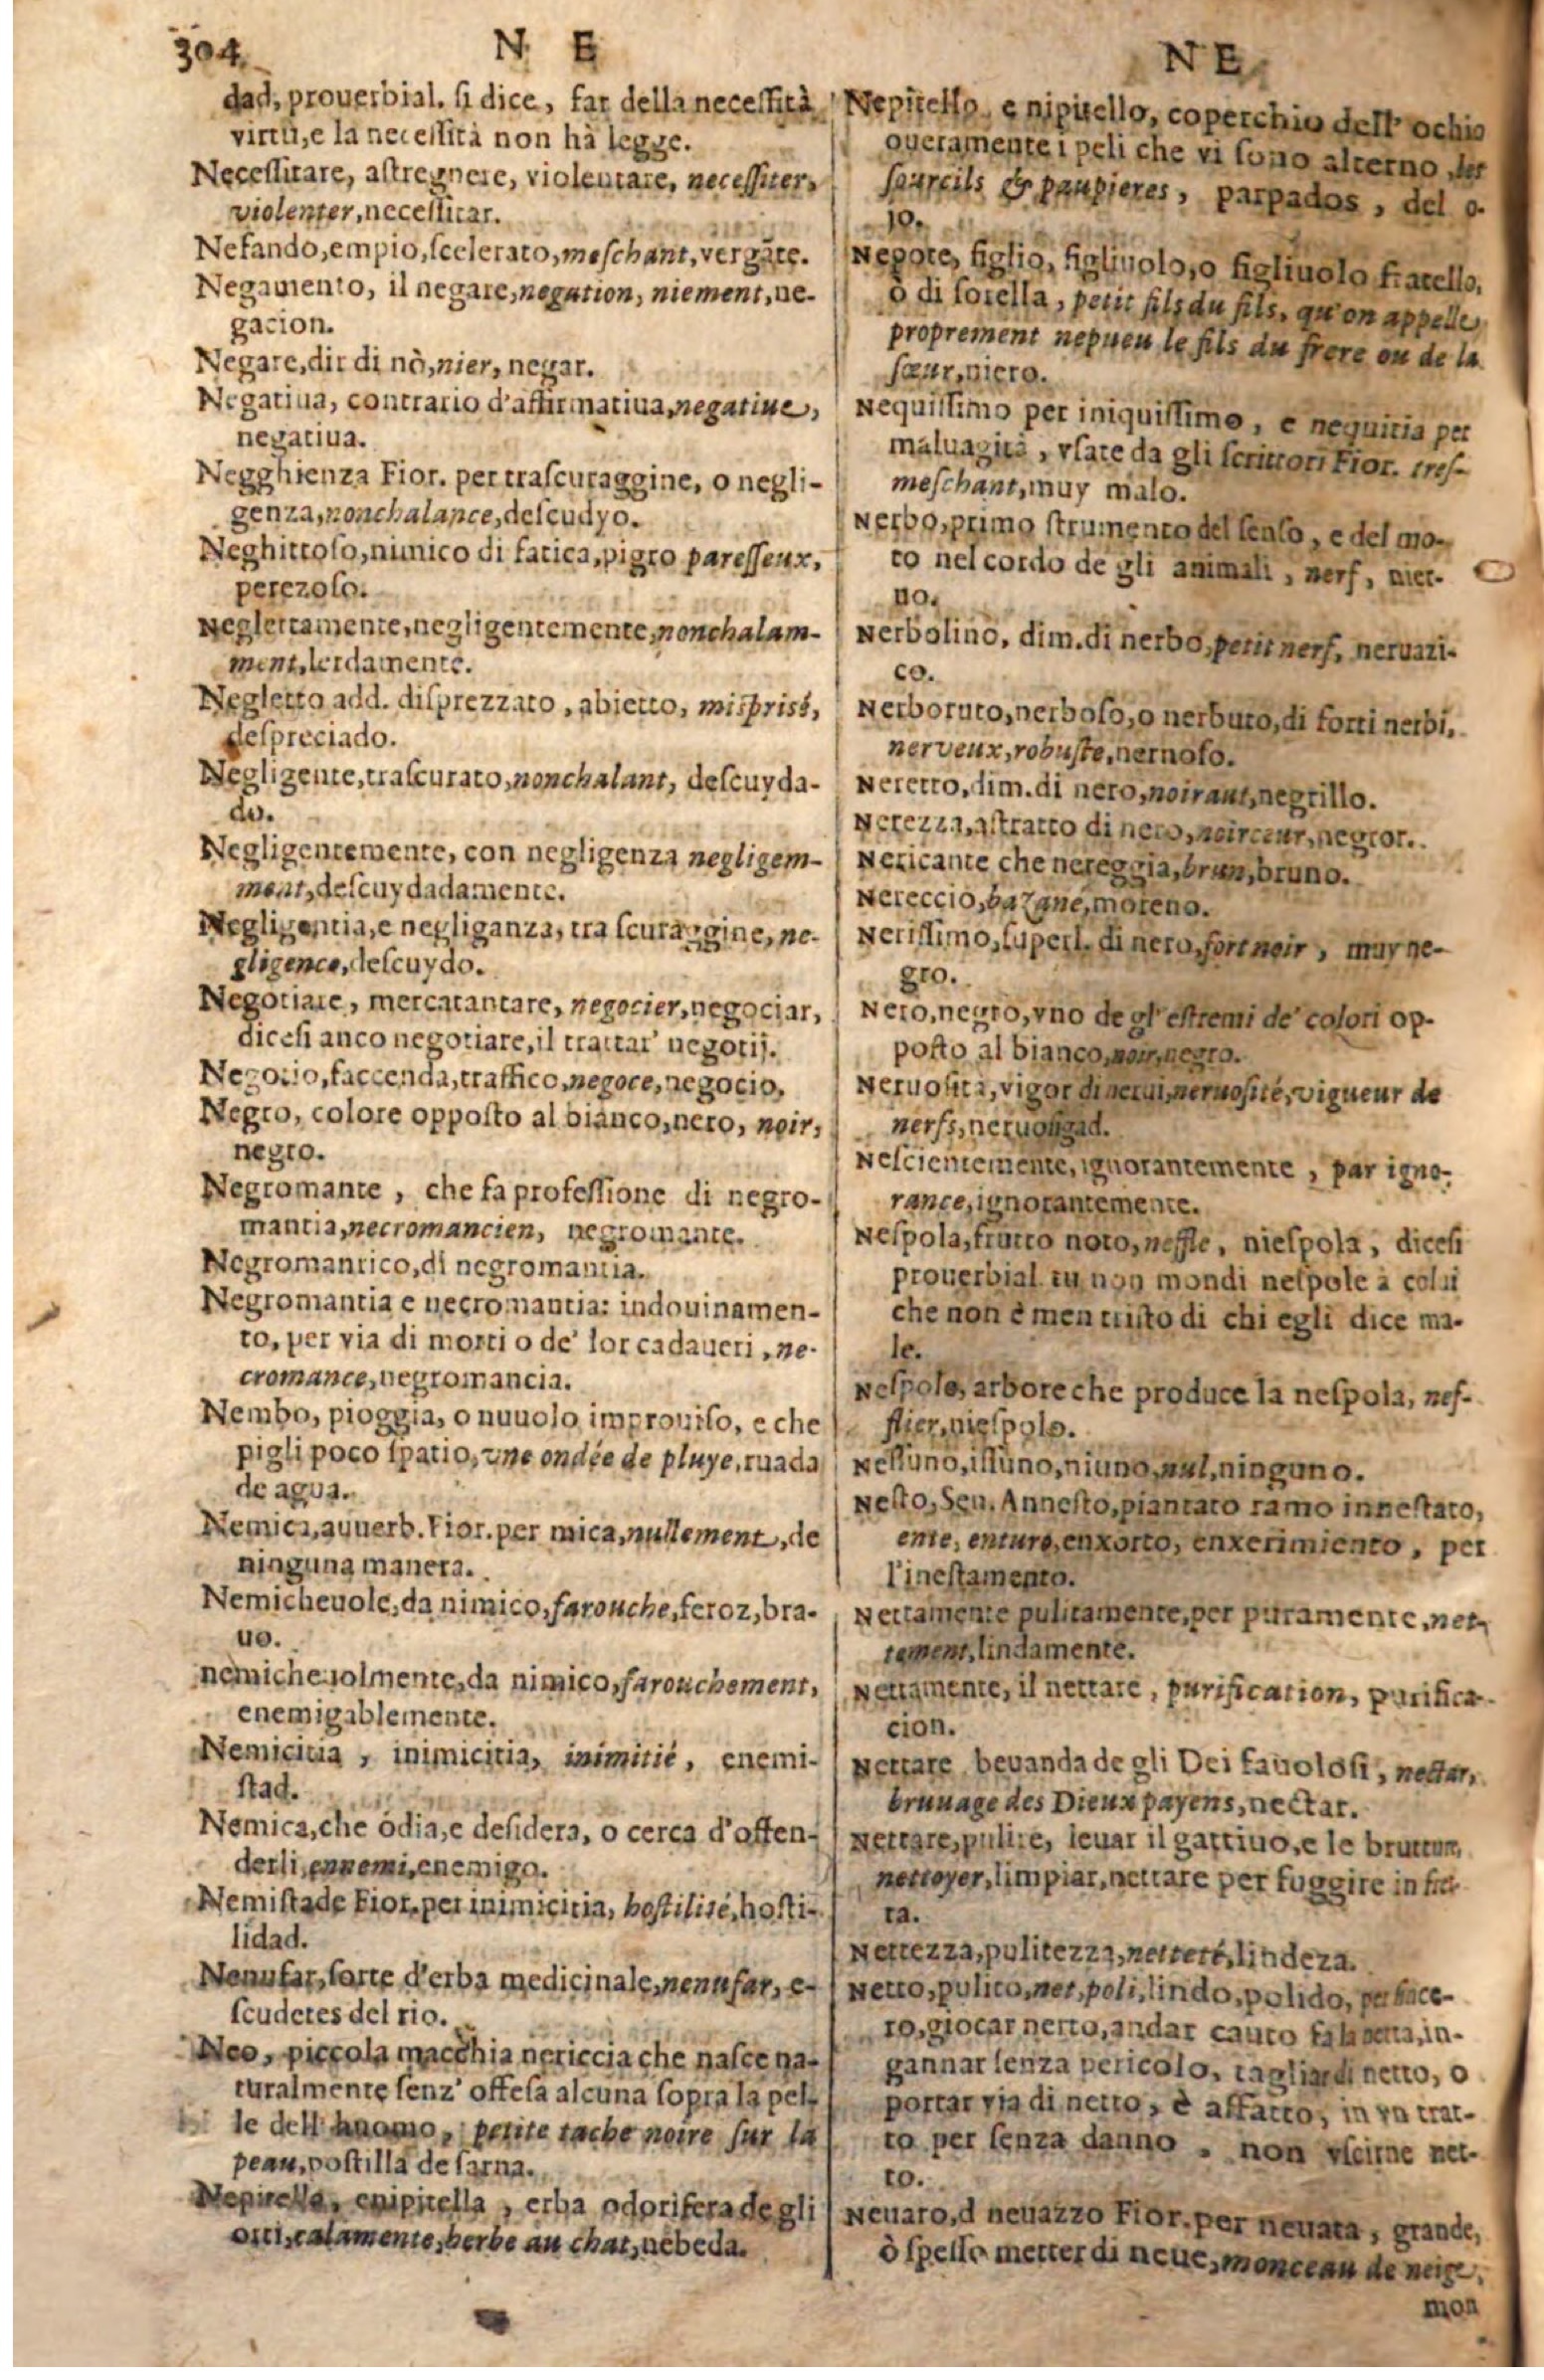 304
N E
dad, prouerbial. ſi dice, far della neceſſità
virtù, e la neceſſità non hà legge.
Neceſſitare, aſtregnere, violentare, neceſſiter,
violenter, neceſſitar.
Nefando, empio, ſcelerato, meſchant, vergāte.
Negamento, il negare, negation, niement, ne-
gacion.
Negare, dir di nò, nier, negar.
Negatiua, contrario d'affirmatiua, negatiue,
negatiua.
Negghienza Fior. per traſcuraggine, o negli-
genza, nonchalance, deſcudyo.
Neghittoſo, nimico di fatica, pigro pareſſeux,
perezoſo.
Neglettamente, negligentemente, nonchalam-
ment, lerdamente.
Negletto add. diſprezzato, abietto, miſpriſé,
deſpreciado.
Negligente, traſcurato, nonchalant, deſcuyda-
do.
Negligentemente, con negligenza negligem-
ment, deſcuydadamente.
Negligentia, e negliganza, tra ſcuraggine, ne-
gligence, deſcuydo.
Negotiare, mercatantare, negocier, negociar,
diceſi anco negotiare, il trattar' negotij.
Negotio, faccenda, traffico, negoce, negocio.
Negro, colore oppoſto al bianco, nero, noir,
negro.
Negromante, che fa profeſſione di negro-
mantia, necromancien, negromante.
Negromantico, di negromantia.
Negromantia e necromantia: indouinamen-
to, per via di morti o de' lor cadaueri, ne-
cromance, negromancia.
Nembo, pioggia, o nuuolo improuiſo, e che
pigli poco ſpatio, vne ondée de pluye, ruada
de agua.
Nemica, auuerb. Fior. per mica, nullement, de
ninguna manera.
Nemicheuole, da nimico, farouche, feroz, bra-
uo.
nemicheuolmente, da nimico, farouchement,
enemigablemente.
Nemicitia, inimicitia, inimitié, enemi-
ſtad.
Nemica, che ódia, e deſidera, o cerca d'offen-
derli, ennemi, enemigo.
Nemiſtade Fior. per inimicitia, hoſtilité, hoſti-
lidad.
Nenufar, ſorte d'erba medicinale, nenufar, e-
ſcudetes del rio.
Neo, piccola macchia nericcia che naſce na-
turalmente ſenz' offeſa alcuna ſopra la pel-
le dell' huomo, petite tache noire ſur la
peau, poſtilla de ſarna.
Nepitella, enipitella, erba odorifera de gli
orti, calamente, herbe au chat, nebeda.
N E
Nepitello, e nipitello, coperchio dell' ochio
oueramente i peli che vi ſono alterno, les
ſourcils & paupieres, parpados, del o-
jo.
Nepote, figlio, figliuolo, o figliuolo fratello,
ò di ſorella, petit fils du fils, qu'on appelle
proprement nepueu le fils du frere ou de la
ſœur, nieto.
Nequiſſimo per iniquiſſimo, e nequitia per
maluagità, vſate da gli ſcrittori Fior. treſ-
meſchant, muy malo.
Nerbo, primo ſtrumento del ſenſo, e del mo-
to nel cordo de gli animali, nerf, nier-
uo.
Nerbolino, dim. di nerbo, petit nerf, neruazi-
co.
Nerboruto, nerboſo, o nerbuto, di forti nerbi,
nerveux, robuſte, nernoſo.
Neretto, dim. di nero, noiraut, negrillo.
Nerezza, aſtratto di nero, noirceur, negror.
Nericante che nereggia, brun, bruno.
Nereccio, bazané, moreno.
Neriſſimo, ſuperl. di nero, fort noir, muy ne-
gro.
Nero, negro, vno de gl' eſtremi de' colori op-
poſto al bianco, noir, negro.
Neruoſità, vigor di nerui, neruoſité, vigueur de
nerfs, neruoſidad.
Neſcientemente, ignorantemente, par igno-
rance, ignorantemente.
Neſpola, frutto noto, neffle, nieſpola, diceſi
prouerbial. tu non mondi neſpole a colui
che non è men triſto di chi egli dice ma-
le.
Neſpolo, arbore che produce la neſpola, nef-
flier, nieſpolo.
Neſſuno, iſſuno, niuno, nul, ninguno.
Neſto, Sen. Anneſto, piantato ramo inneſtato,
ente, enture, enxorto, enxerimiento, per
l'ineſtamento.
Nettamente pulitamente, per puramente, net-
tement, lindamente.
Nettamente, il nettare, purification, purifica-
cion.
Nettare beuanda de gli Dei fauoloſi, nectar,
bruuage des Dieux payens, nectar.
Nettare, pulire, leuar il gattiuo, e le brutture,
nettoyer, limpiar, nettare per fuggire in fret-
ta.
Nettezza, pulitezza, netteté, lindeza.
Netto, pulito, net, poli, lindo, polido, per ſince-
ro, giocar netto, andar cauto fa la netta, in-
gannar ſenza pericolo, tagliar di netto, o
portar via di netto, è affatto, in vn trat-
to per ſenza danno, non vſcirne net-
to.
Neuaro, d neuazzo Fior. per neuata, grande,
ò ſpeſſo metter di neue, monceau de neige,
mon